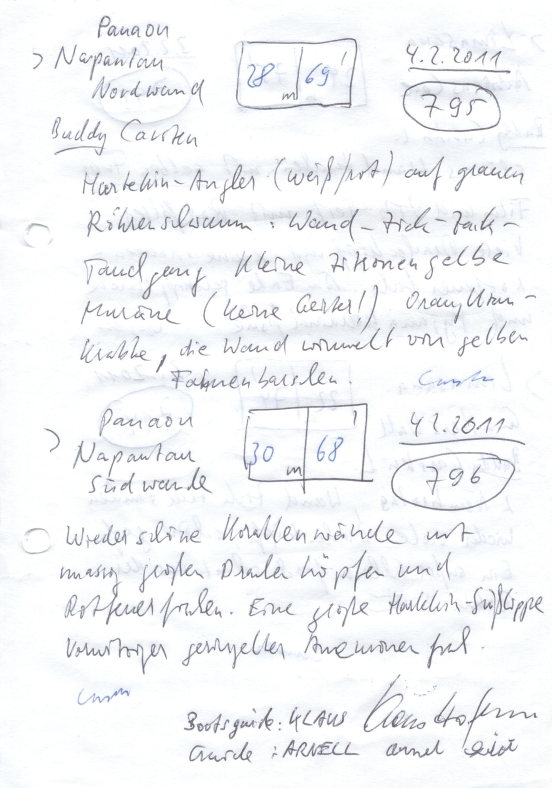 Panaon
> Napantau
Nordwand
28 m 69'
4.2.2011
795
Buddy Carsten
Harlekin-Angler (weiß/rot) auf grauen
Röhrenschwamm. Wand-Zick-Zack-
Tauchgang Kleine Zitronengelbe
Muräne (keine Geister!) Orang Utan-
Krabbe, die Wand wimmelt von gelben
Fahnenbarschen.
Panaon
> Napantau
Südwande
30 m 68'
4.2.2011
796
Wieder schöne Korallenwände mit
massig großen Drachenköpfen und
Rotfeuerfischen. Eine große Harlekin-Süßlippe
Anemonen
Bootsguide: KLAUS
Guide: ARNELL